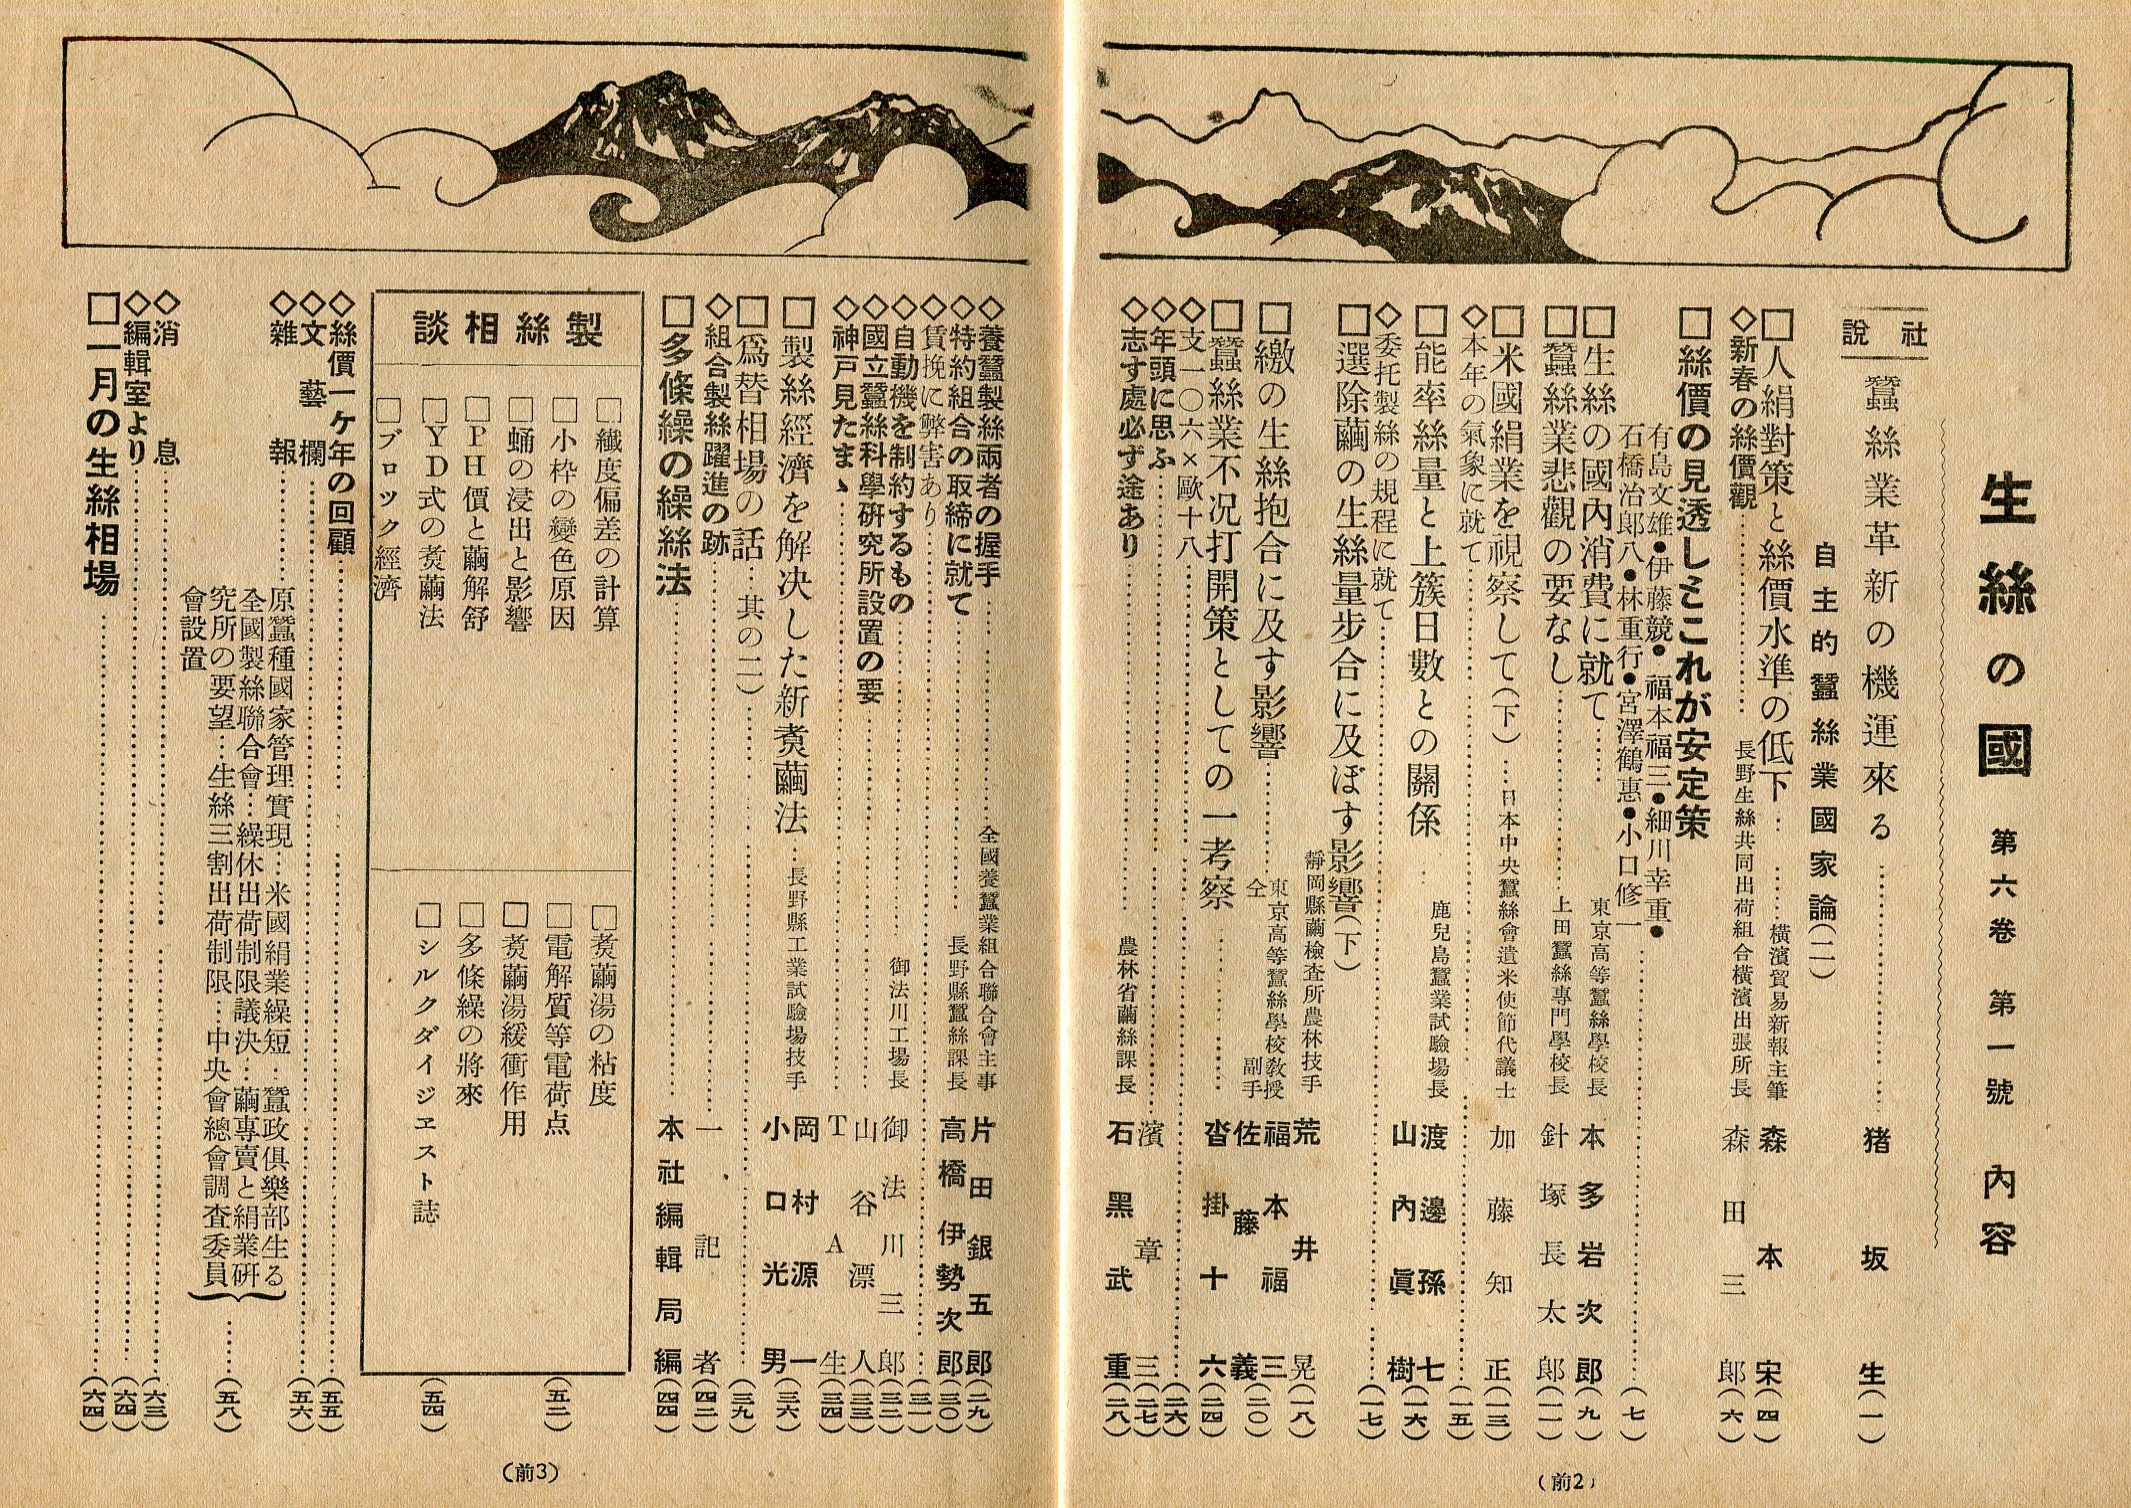 生絲の國 第六卷 第一號 內容
社說
蠶絲業革新の機運來る……猪坂生(一)
自主的蠶絲業國家論(二)
□人絹對策と絲價水準の低下……橫濱貿易新報主筆 森本宋(四)
◇新春の絲價觀……長野生絲共同出荷組合橫濱出張所長 森田三郎(六)
□絲價の見透しとこれが安定策
有島文雄●伊藤競●福本福三●細川幸重●
石橋治郎八●林重行●宮澤鶴惠●小口修一……(七)
□生絲の國內消費に就て……東京高等蠶絲學校長 本多岩次郎(九)
□蠶絲業悲觀の要なし……上田蠶絲專門學校長 針塚長太郎(一一)
□米國絹業を視察して(下)……日本中央蠶絲會遣米使節代議士 加藤知正(一三)
◇本年の氣象に就て……(一五)
□能率絲量と上簇日數との關係……鹿兒島蠶業試驗場長 渡邊孫七 山內眞樹(一六)
◇委托製絲の規程に就て……(一七)
□選除繭の生絲量步合に及ぼす影響(下) 靜岡縣繭檢査所農林技手 荒井晃(一八)
□繳の生絲抱合に及す影響……東京高等蠶絲學校敎授 福本福三 仝 副手 佐藤義(二〇)
□蠶絲業不況打開策としての一考察……沓掛十六(二四)
◇支一〇六×歐十八……(二六)
◇年頭に思ふ……濱章三(二七)
◇志す處必ず途あり……農林省繭絲課長 石黑武重(二八)
(前2)
◇養蠶製絲兩者の握手……全國養蠶業組合聯合會主事 片田銀五郎(二九)
◇特約組合の取締に就て……長野縣蠶絲課長 高橋伊勢次郎(三〇)
◇賃挽に弊害あり……(三一)
◇自動機を制約するもの……御法川工場長 御法川三郎(三二)
◇國立蠶絲科學硏究所設置の要……山谷漂人(三三)
◇神戶見たまゝ……TA生(三四)
□製絲經濟を解決した新煑繭法……長野縣工業試驗場技手 岡村源一 小口光男(三六)
□爲替相場の話…其の二)……(三九)
◇組合製絲躍進の跡……一記者(四二)
□多條繰の繰絲法……本社編輯局編(四四)
製絲相談
□纖度偏差の計算
□小枠の變色原因
□蛹の浸出と影響
□PH價と繭解舒
□YD式の煑繭法
□ブロック經濟
□煑繭湯の粘度
□電解質等電荷点
□煑繭湯緩衝作用
□多條繰の將來
□シルクダイジェスト誌
(五二)
(五四)
◇絲價一ケ年の回顧……(五五)
◇文藝欄……(五六)
◇雜報……原蠶種國家管理實現…米國絹業繰短…蠶政俱樂部生る
全國製絲聯合會…繰休出荷制限議決…繭專賣と絹業硏
究所の要望…生絲三割出荷制限…中央會總會調査委員
會設置……(五八)
◇消息……(六三)
◇編輯室より……(六四)
□一月の生絲相場……(六四)
(前3)